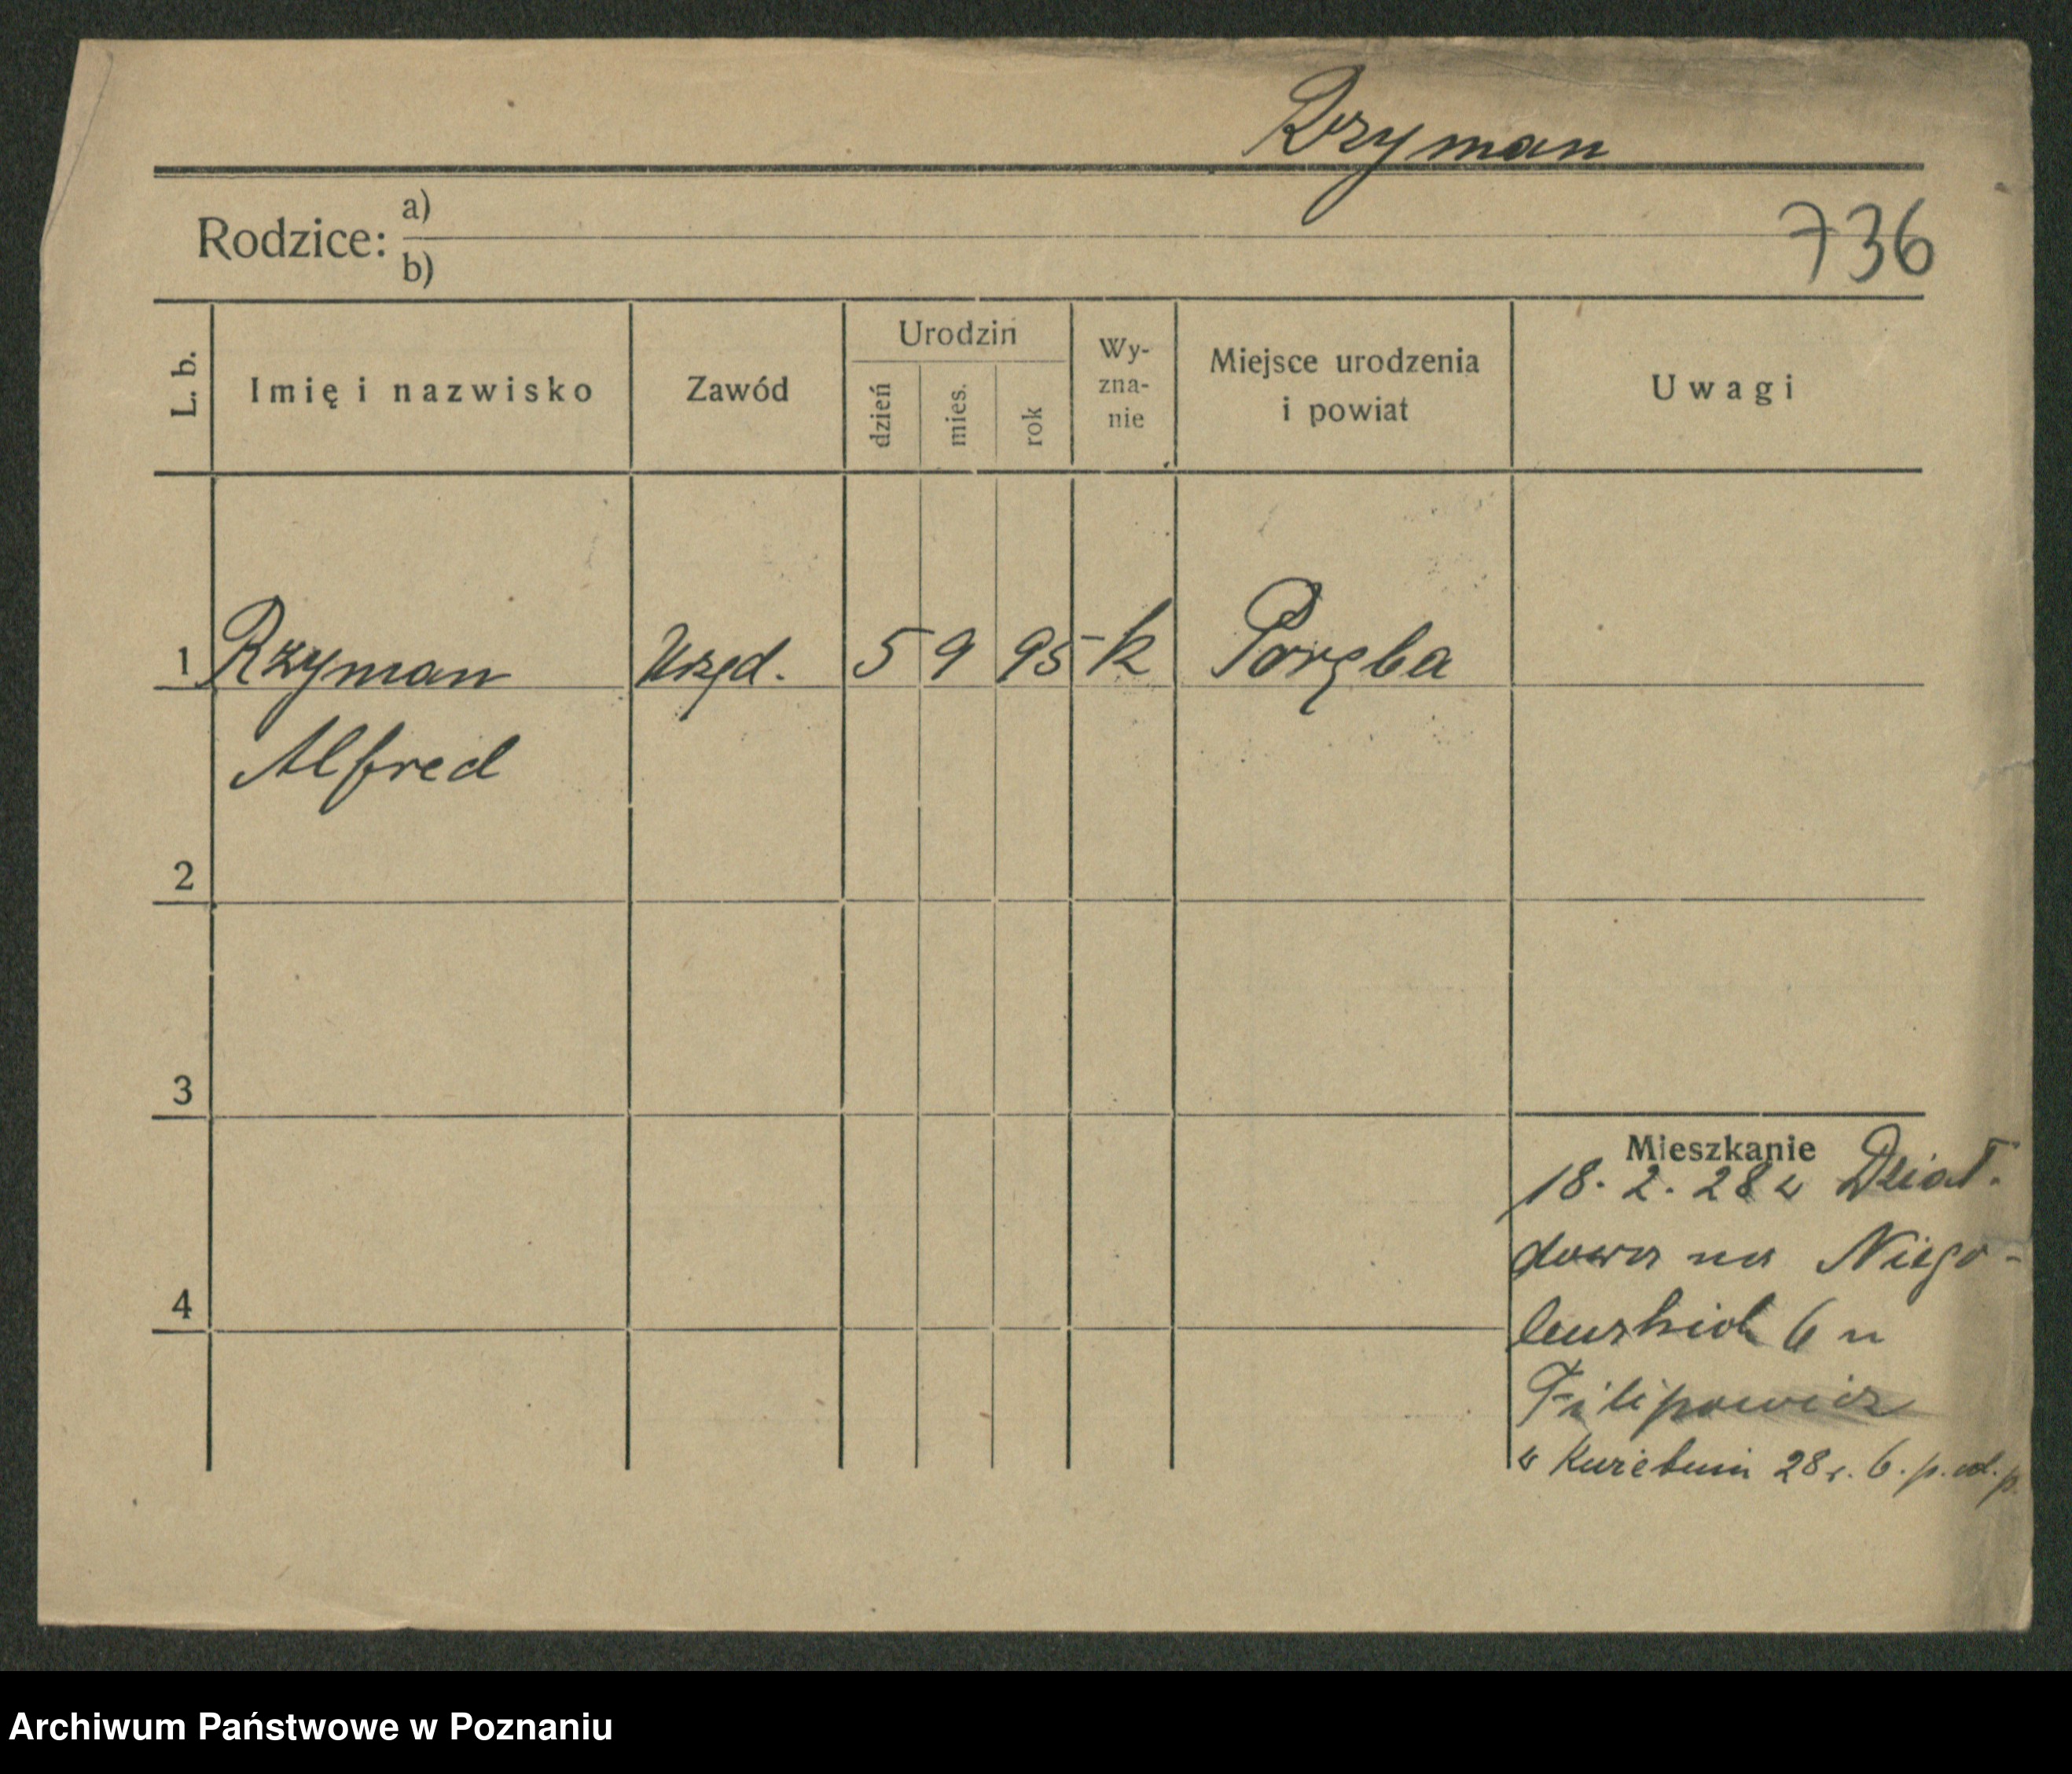 Rzyman
Rodzice: a)
b)
736
L. b. Imię i nazwisko Zawód Urodzin dzień mies. rok Wy-zna-nie Miejsce urodzenia i powiat Uwagi
1 Rzyman Urzęd. 5 9 95 k Poręba
Alfred
2
3
4
Mieszkanie
18. 2. 28 z Dział-
dowa na Niego-
lewskich 6 u
Filipowicz
28 r. 6.
Archiwum Państwowe w Poznaniu